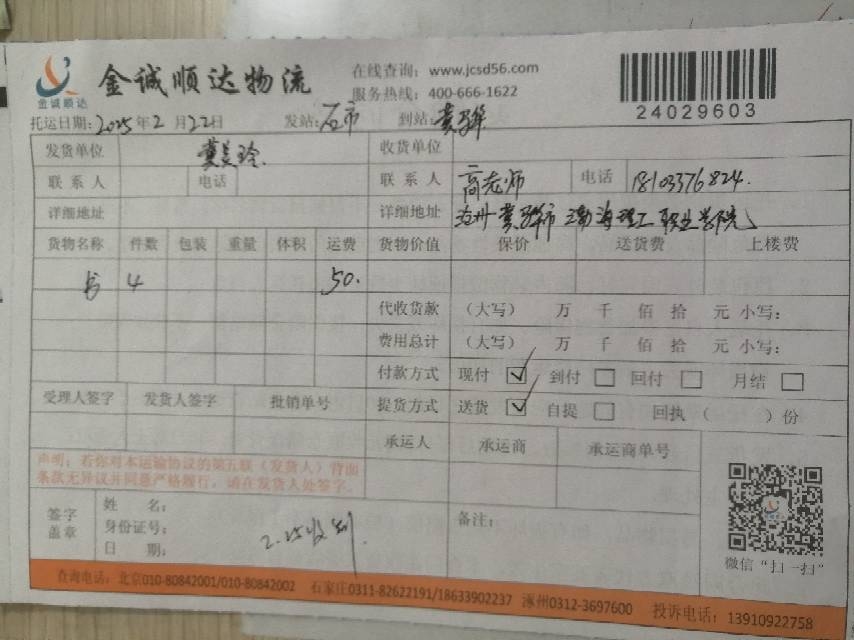 金诚顺达
金诚顺达物流
在线查询：www.jcsd56.com
服务热线：400-666-1622
24029603
托运日期：2025年2月22日 发站：石市 到站：黄骅
发货单位 收货单位
联系人 电话 联系人 高老师 电话 18103376824.
详细地址 详细地址 沧州黄骅市渤海理工职业学院
货物名称 件数 包装 重量 体积 运费 货物价值 保价 送货费 上楼费
书 4 50.
代收货款 （大写） 万 千 佰 拾 元 小写：
费用总计 （大写） 万 千 佰 拾 元 小写：
付款方式 现付 ☑ 到付 □ 回付 □ 月结 □
受理人签字 发货人签字 批销单号 提货方式 送货 ☑ 自提 □ 回执（ ）份
承运人 承运商 承运商单号
声明：若你对本运输协议的第五联（发货人）背面
条款无异议并同意严格履行，请在发货人处签字。
签字
盖章
姓 名：
身份证号：
日 期：
2.25收到.
备注：
微信“扫一扫”
查询电话：北京010-80842001/010-80842002 石家庄0311-82622191/18633902237 涿州0312-3697600 投诉电话：13910922758